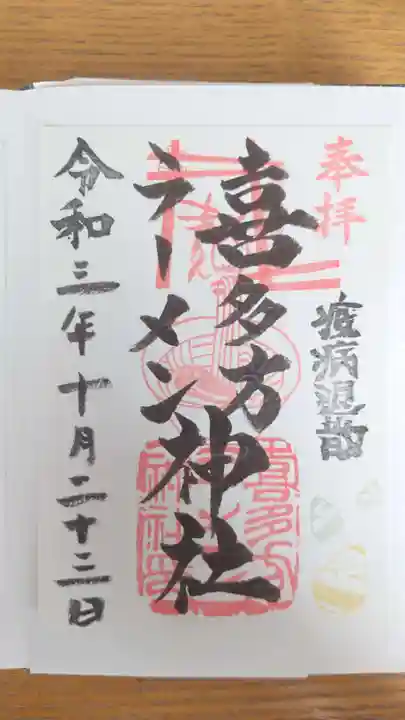 奉拝
疫病退散
喜多方
ラーメン
神社
令和三年十月二十三日